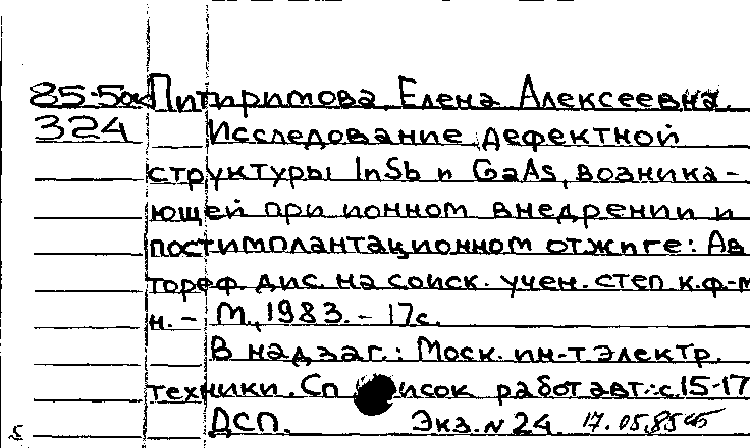 85-5ок Питиримова Елена Алексеевна.
324 Исследование дефектной
структуры InSb и GaAs, возника-
ющей при ионном внедрении и
постимплантационном отжиге: Ав
тореф. дис. на соиск. учен. степ к.ф-м
н. - М., 1983. - 17с.
В надзаг.: Моск. ин-т электр.
техники. Сп исок работ авт.: с.15-17
ДСП. Экз. N 24. 17.05.85